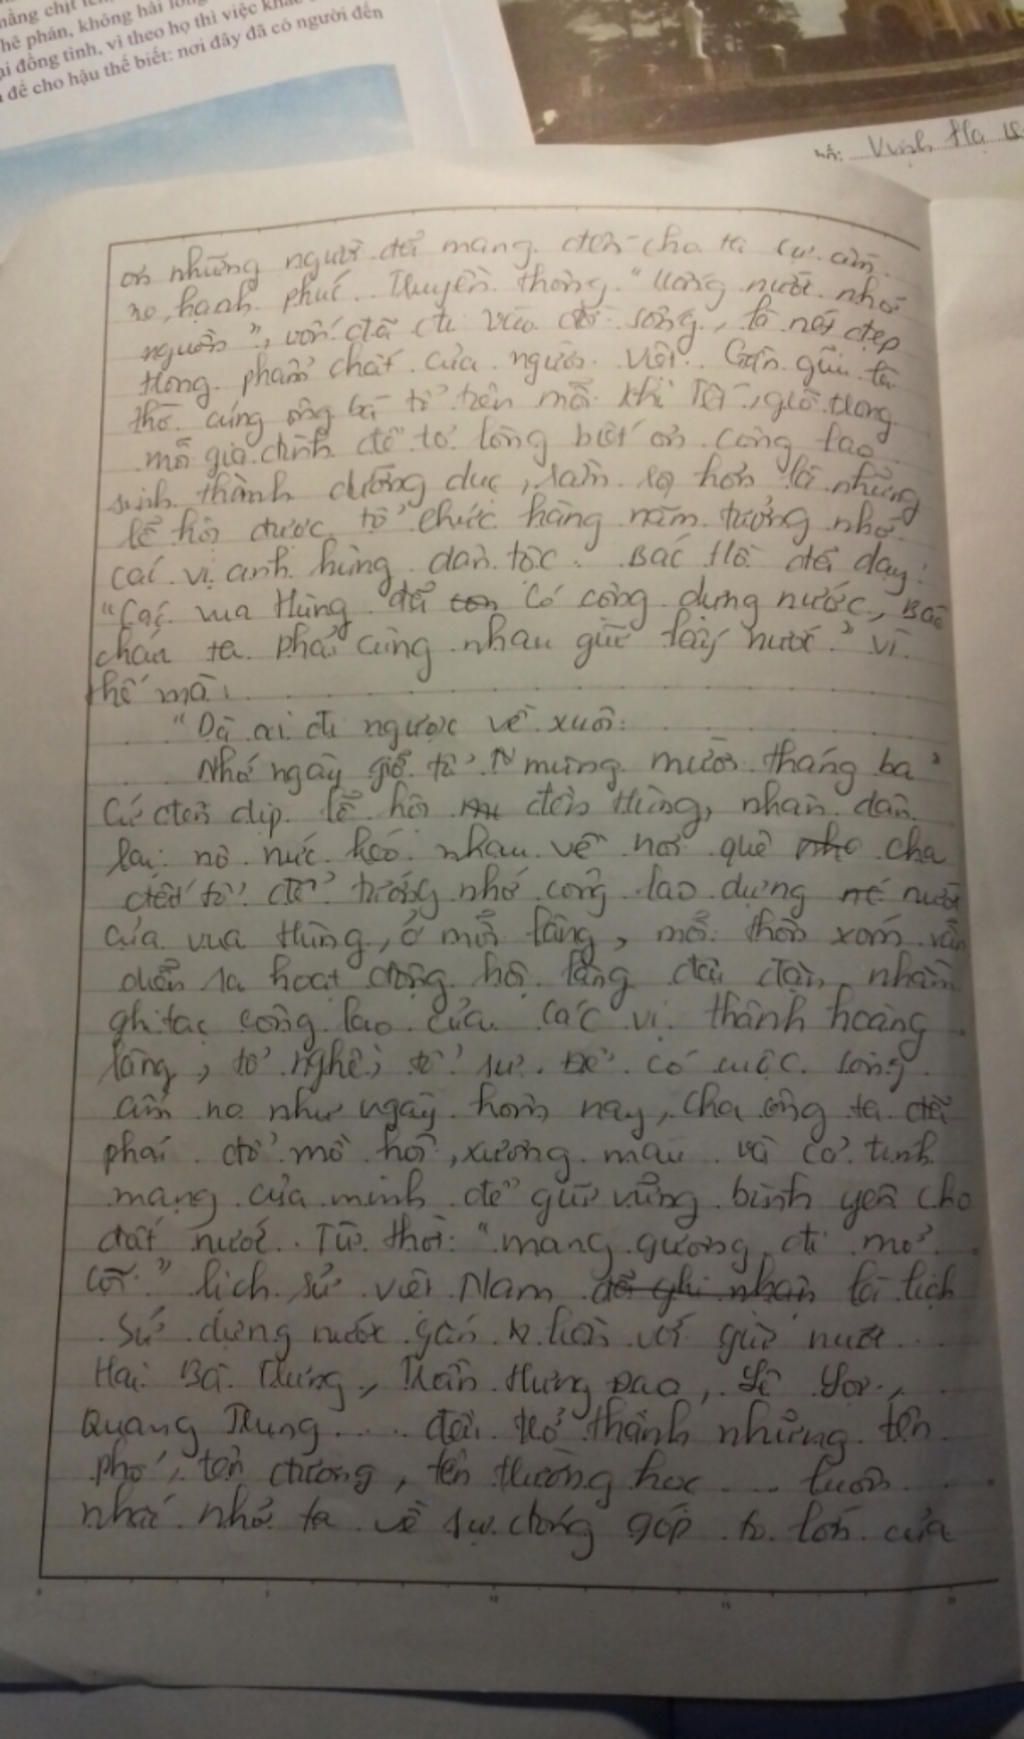 nặng chịt
hê phán, không hài
ại đồng tình, vì theo họ thì việc
để cho hậu thế biết: nơi đây đã có người đến
Vịnh Hạ
ơn những người đã mang đến cho ta sự ấm
no, hạnh phúc. Truyền thống "uống nước nhớ
nguồn", vốn đã đi vào đời sống, là nét đẹp
trong phẩm chất của người Việt. Gần gũi là
thờ cúng ông bà tổ tiên mỗi khi Tết, giỗ trong
mỗi gia đình để tỏ lòng biết ơn công lao
sinh thành dưỡng dục, xa hơn là những
lễ hội được tổ chức hàng năm tưởng nhớ
các vị anh hùng dân tộc. Bác Hồ đã dạy:
"Các vua Hùng đã có công dựng nước, Bác
cháu ta phải cùng nhau giữ lấy nước" vì
thế mà:
"Dù ai đi ngược về xuôi
Nhớ ngày giỗ tổ mùng mười tháng ba"
Cứ đến dịp lễ hội đền Hùng, nhân dân
lại nô nức kéo nhau về nơi quê cha
đất tổ để tưởng nhớ công lao dựng nước
của vua Hùng, ở mỗi làng, mỗi thôn xóm vẫn
diễn ra hoạt động hội làng đều đặn nhằm
ghi tạc công lao của các vị thành hoàng
làng, tổ nghề, tổ sư. Để có cuộc sống
ấm no như ngày hôm nay, cha ông ta đã
phải đổ mồ hôi, xương máu và cả tính
mạng của mình để giữ vững bình yên cho
đất nước. Từ thời "mang gương đi mở
cõi" lịch sử Việt Nam là lịch
sử dựng nước gắn liền với giữ nước
Hai Bà Trưng, Trần Hưng Đạo, Lê Lợi,
Quang Trung.... đều trở thành những tên
phố, tên đường, tên trường học .... luôn
nhắc nhở ta về sự đóng góp to lớn của